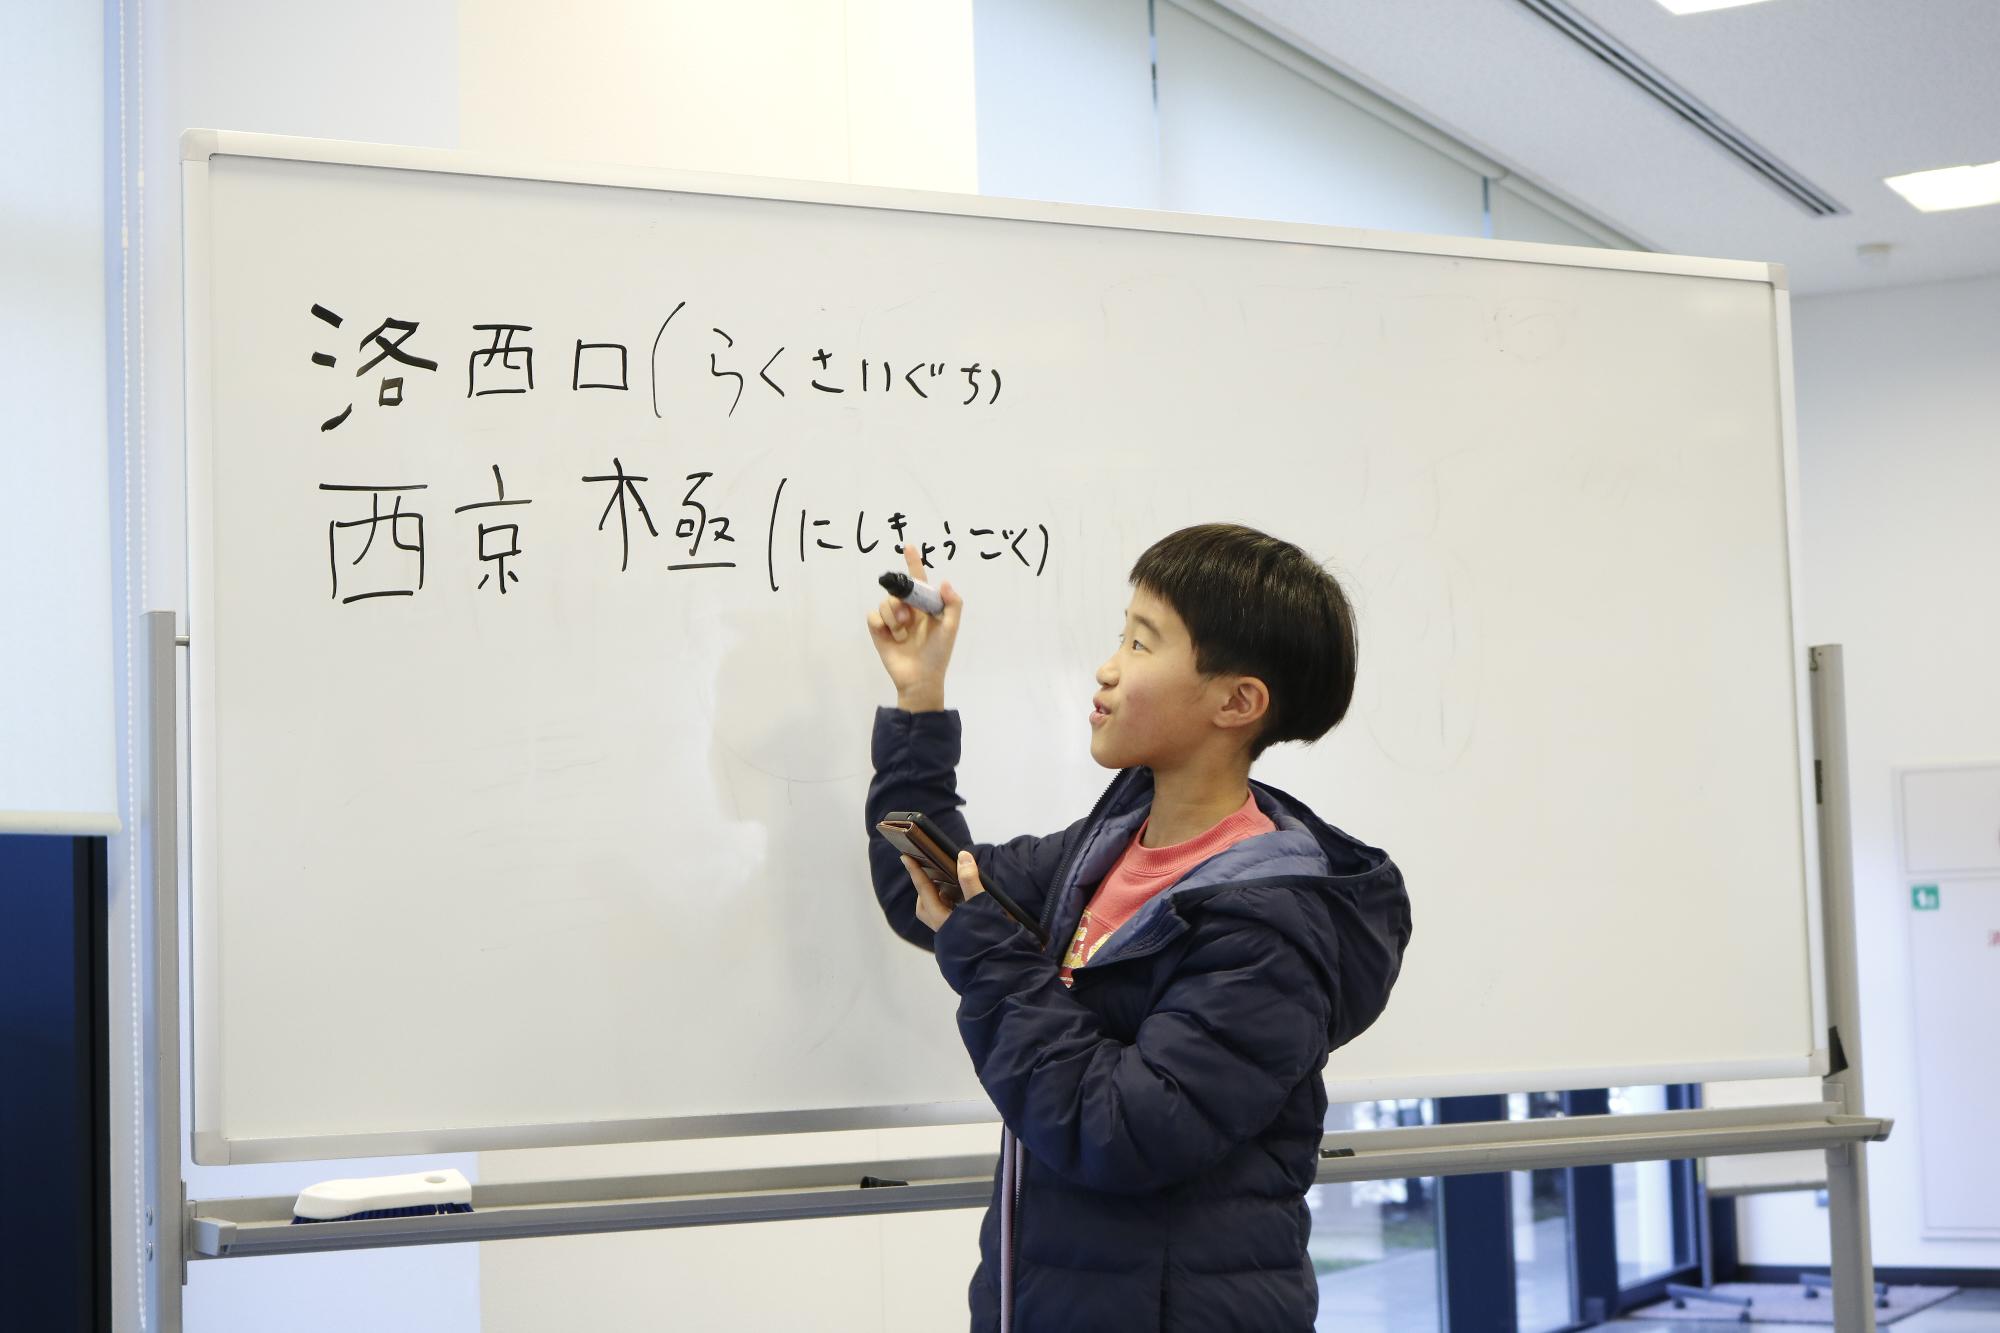 洛西口(らくさいぐち)
西京極(にしきょうごく)